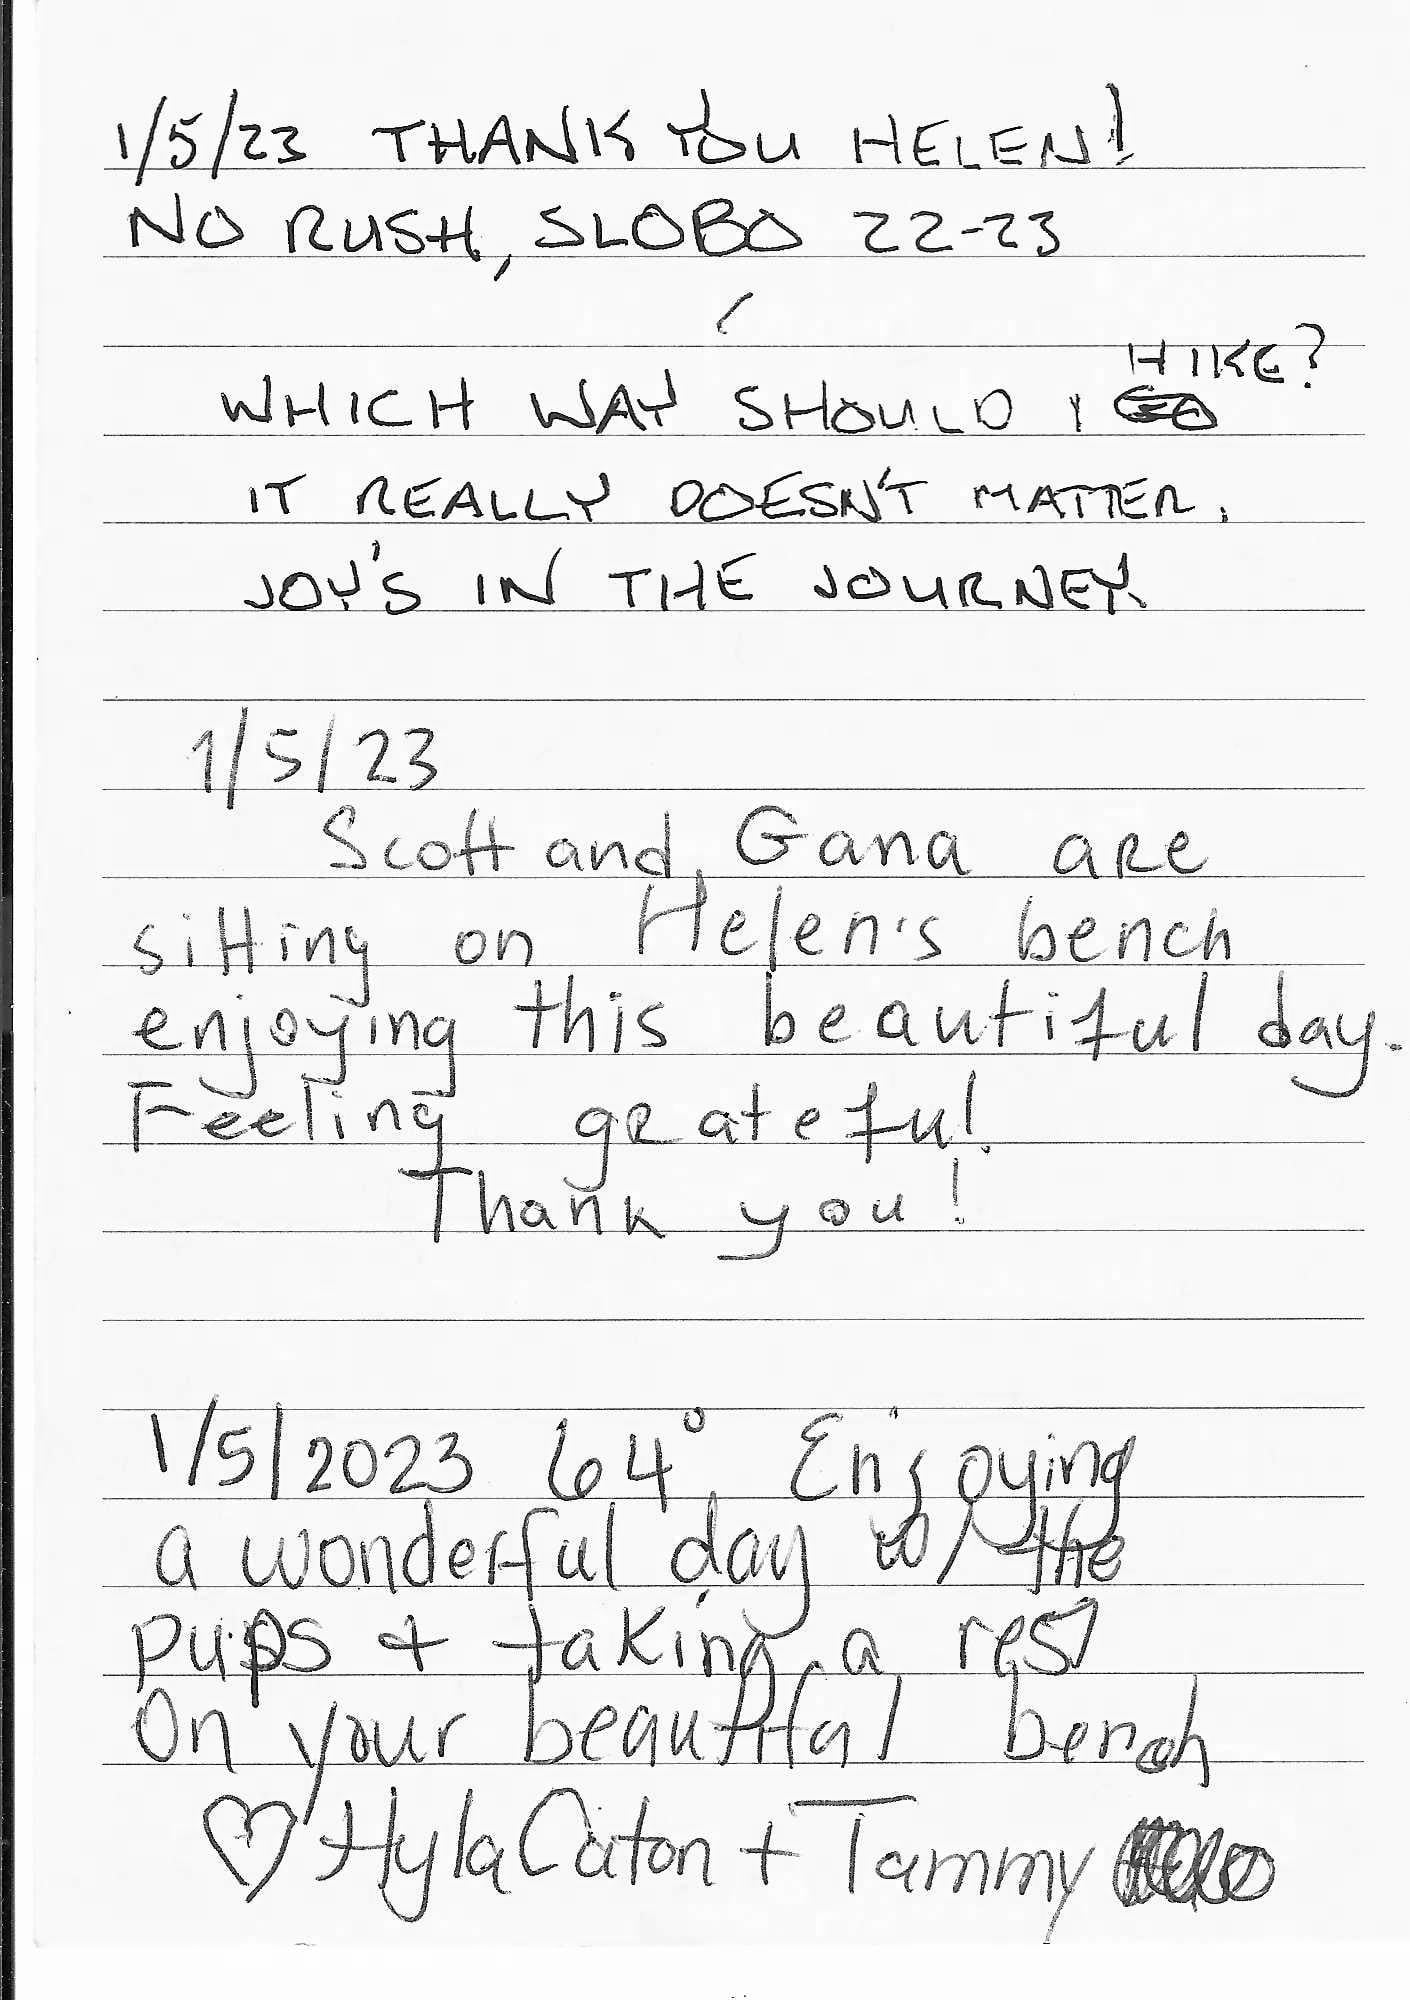 1/5/23 THANK YOU HELEN!
NO RUSH, SLOBO 22-23
WHICH WAY SHOULD I HIKE?
IT REALLY DOESN'T MATTER.
JOY'S IN THE JOURNEY.
1/5/23
Scott and Gana are
sitting on Helen's bench
enjoying this beautiful day.
Feeling grateful.
Thank you!
1/5/2023 64° Enjoying
a wonderful day w/ the
pups + taking a rest
On your beautiful bench
♡ Hyla Caton + Tammy